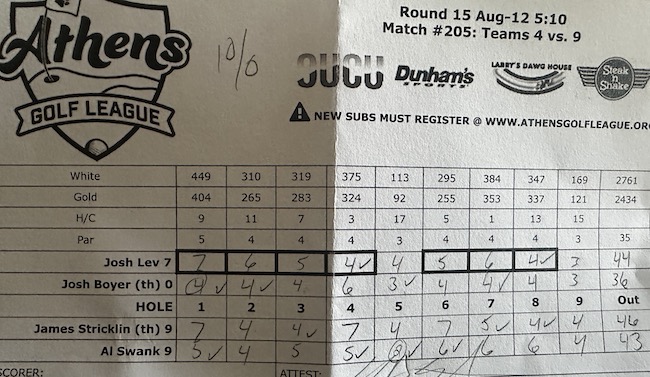 Athens
GOLF LEAGUE
10/0
Round 15 Aug-12 5:10
Match #205: Teams 4 vs. 9
Dunham's
SPORTS
LARRY'S DAWG HOUSE
Steak n Shake
NEW SUBS MUST REGISTER @ WWW.ATHENSGOLFLEAGUE.OR
White 449 310 319 375 113 295 384 347 169 2761
Gold 404 265 283 324 92 255 353 337 121 2434
H/C 9 11 7 3 17 5 1 13 15
Par 5 4 4 4 3 4 4 4 3 35
Josh Lev 7 7 6 5 4✓ 4 5 6 4✓ 3 44
Josh Boyer (th) 0 4✓ 4✓ 4 6 3✓ 4 4✓ 4 3 36
HOLE 1 2 3 4 5 6 7 8 9 Out
James Stricklin (th) 9 7 4 4✓ 7 4 7 5✓ 4✓ 4 46
Al Swank 9 5✓ 4 5 5✓ ✓ 6✓ 6 6 4 43
SCORER: ATTEST: